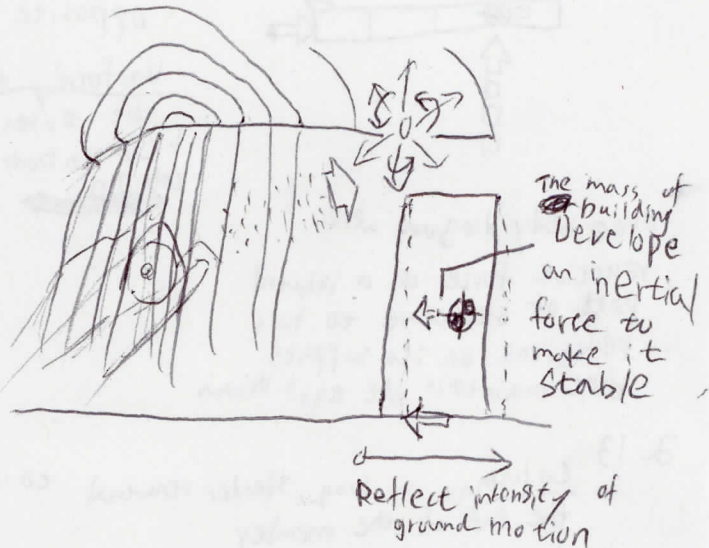 The mass of
building
Develope
an inertial
force to
make it
stable
Reflect intensity of
ground motion